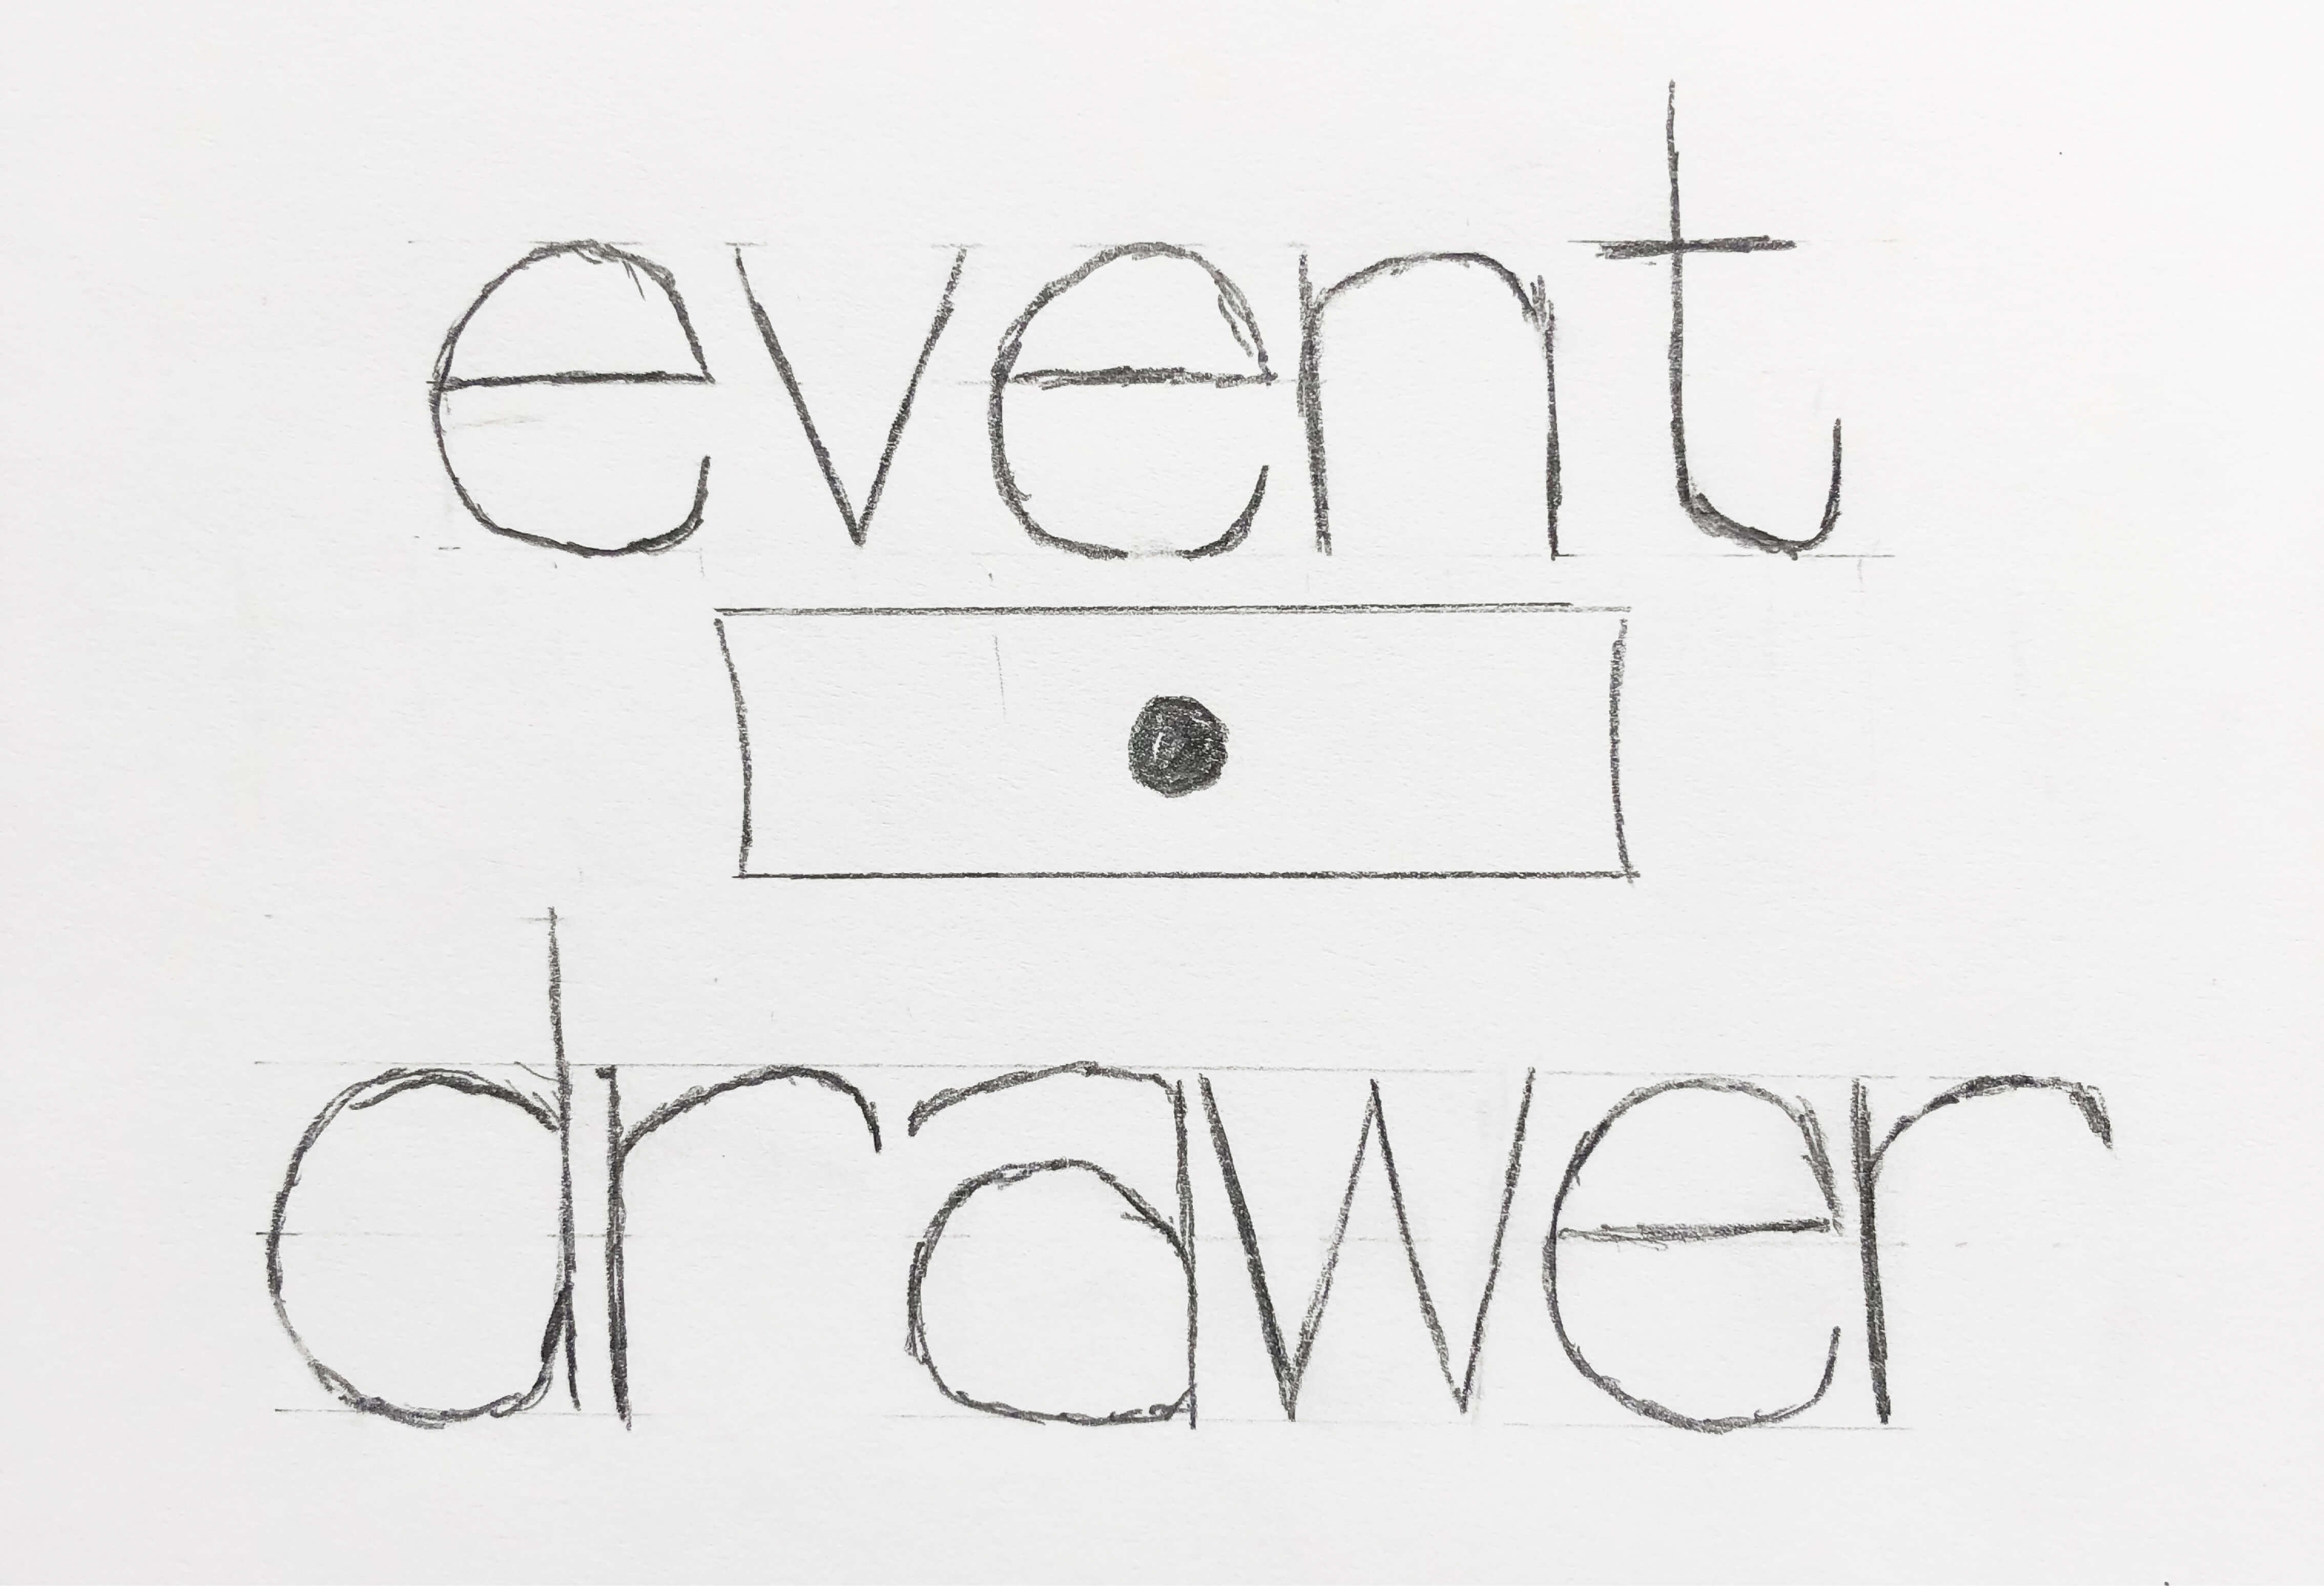 event
drawer